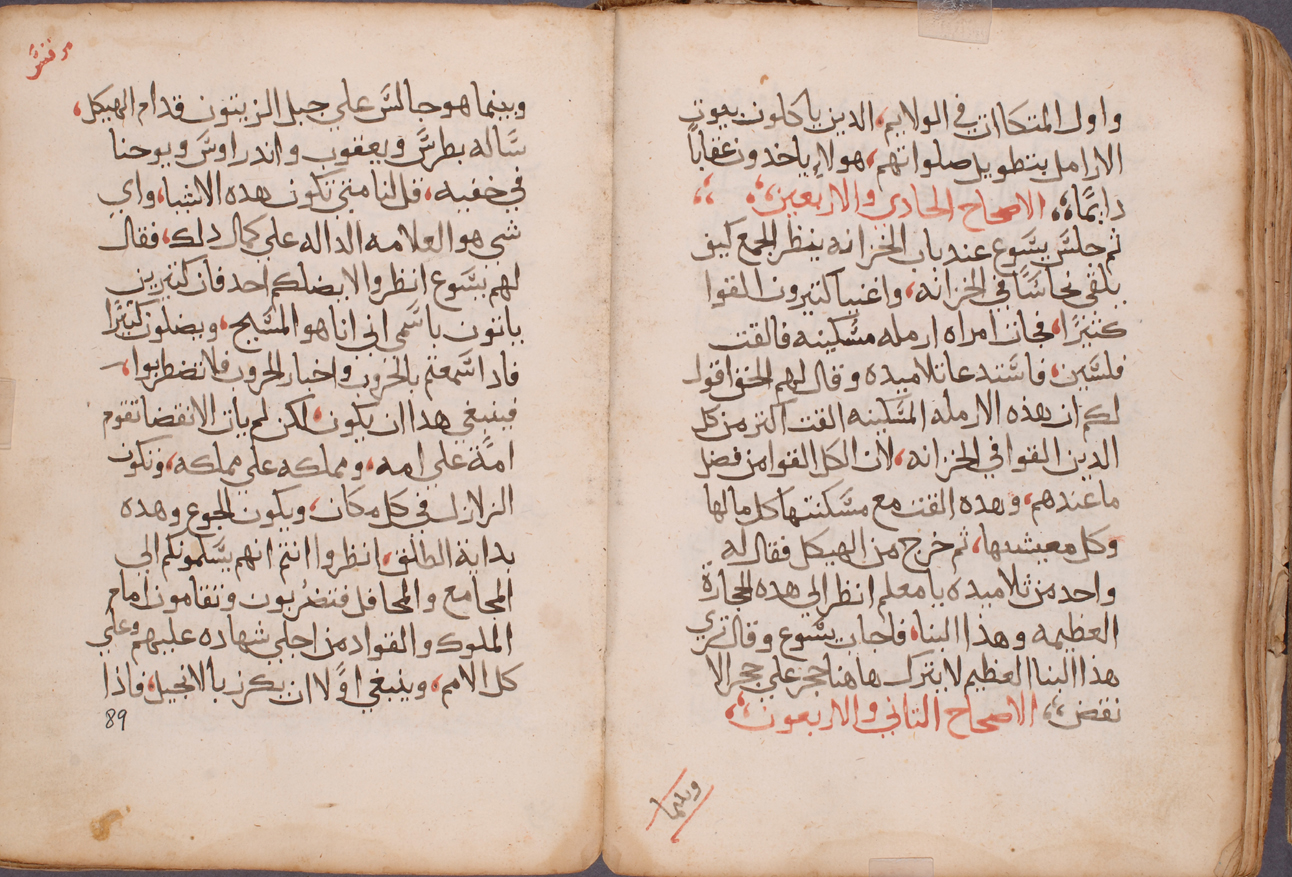 واول المتكاات في الولايم، الدين ياكلون بيوت
الارامل بتطويل صلواتهم، هولاء ياخدون عقاباً
دايمًا، الاصحاح الحادي والاربعين
ثم جلس يسوع عند باب الخزانه ينظر الجمع كيف
يلقي نحاسًا في الخزانه، واغنيا كتيرون القوا
كتيرًا، فجات امراه ارمله مسكينه فالقت
فلسين، فاستدعا تلاميده وقال لهم الحق اقول
لكم ان هذه الارمله المسكينه القت اكتر من كل
الدين القوا في الخزانه، لان الكل القوا من فضل
ما عندهم، وهده القت مع مسكنتها كل مالها
وكل معيشتها، ثم خرج من الهيكل فقال له
واحد من تلاميده يا معلم انظر الي هده الحجارة
العظيمه وهذا البنا، فاجاب يسوع وقال تري
هذا البنا العظيم لا يترك هاهنا حجر علي حجر الا
نقض، الاصحاح التاني والاربعون
وبينما
مرقس
وبينما هو جالس علي جبل الزيتون قدام الهيكل،
ساله بطرس ويعقوب واندراوس ويوحنا
في خفيه، قل لنا متي تكون هده الاشيا، واي
شي هو العلامه الداله علي كمال دلك، فقال
لهم يسوع انظروا لا يضلكم احد فان كتيرين
ياتون باسمي اني انا هو المسيح، ويضلون كثيرًا
فادا سمعتم بالحروب واخبار الحروب فلا تضطربوا،
فينبغي هدا ان يكون، لكن لم يات الانقضا تقوم
امة علي امه، ومملكه علي مملكه، وتكون
الزلازل في كل مكان، ويكون الجوع وهده
بداية الطلق، انظروا انتم انهم يسلمونكم الي
المجامع والمحافل فتضربون وتقامون امام
الملوك والقواد من اجلي شهاده عليهم وعلي
كل الامم، وينبغي اوًلا ان يكرز بالانجيل، فاذا
89